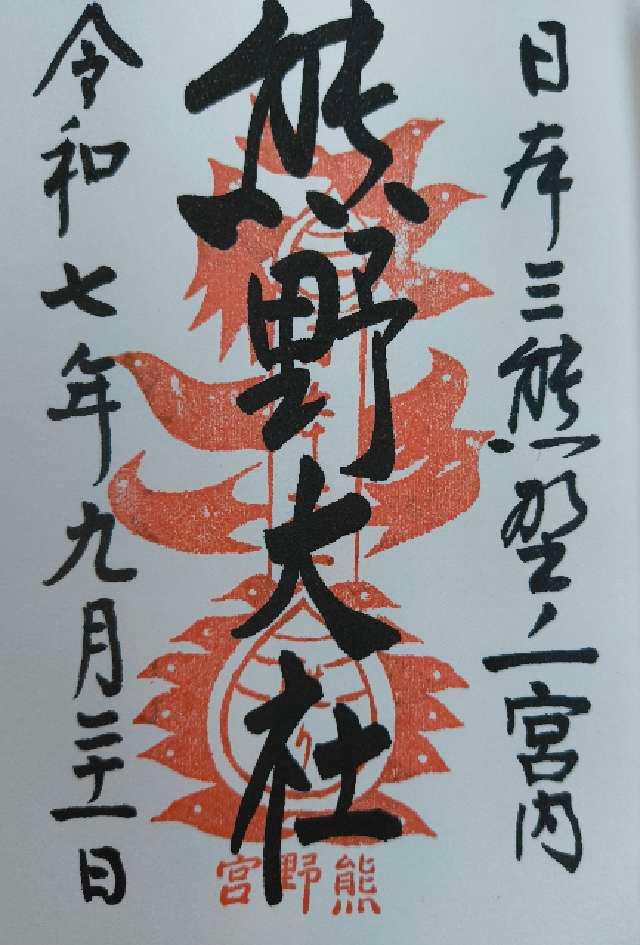 日本三熊野ノ一宮内
熊野大社
令和七年九月二十一日
熊野宮